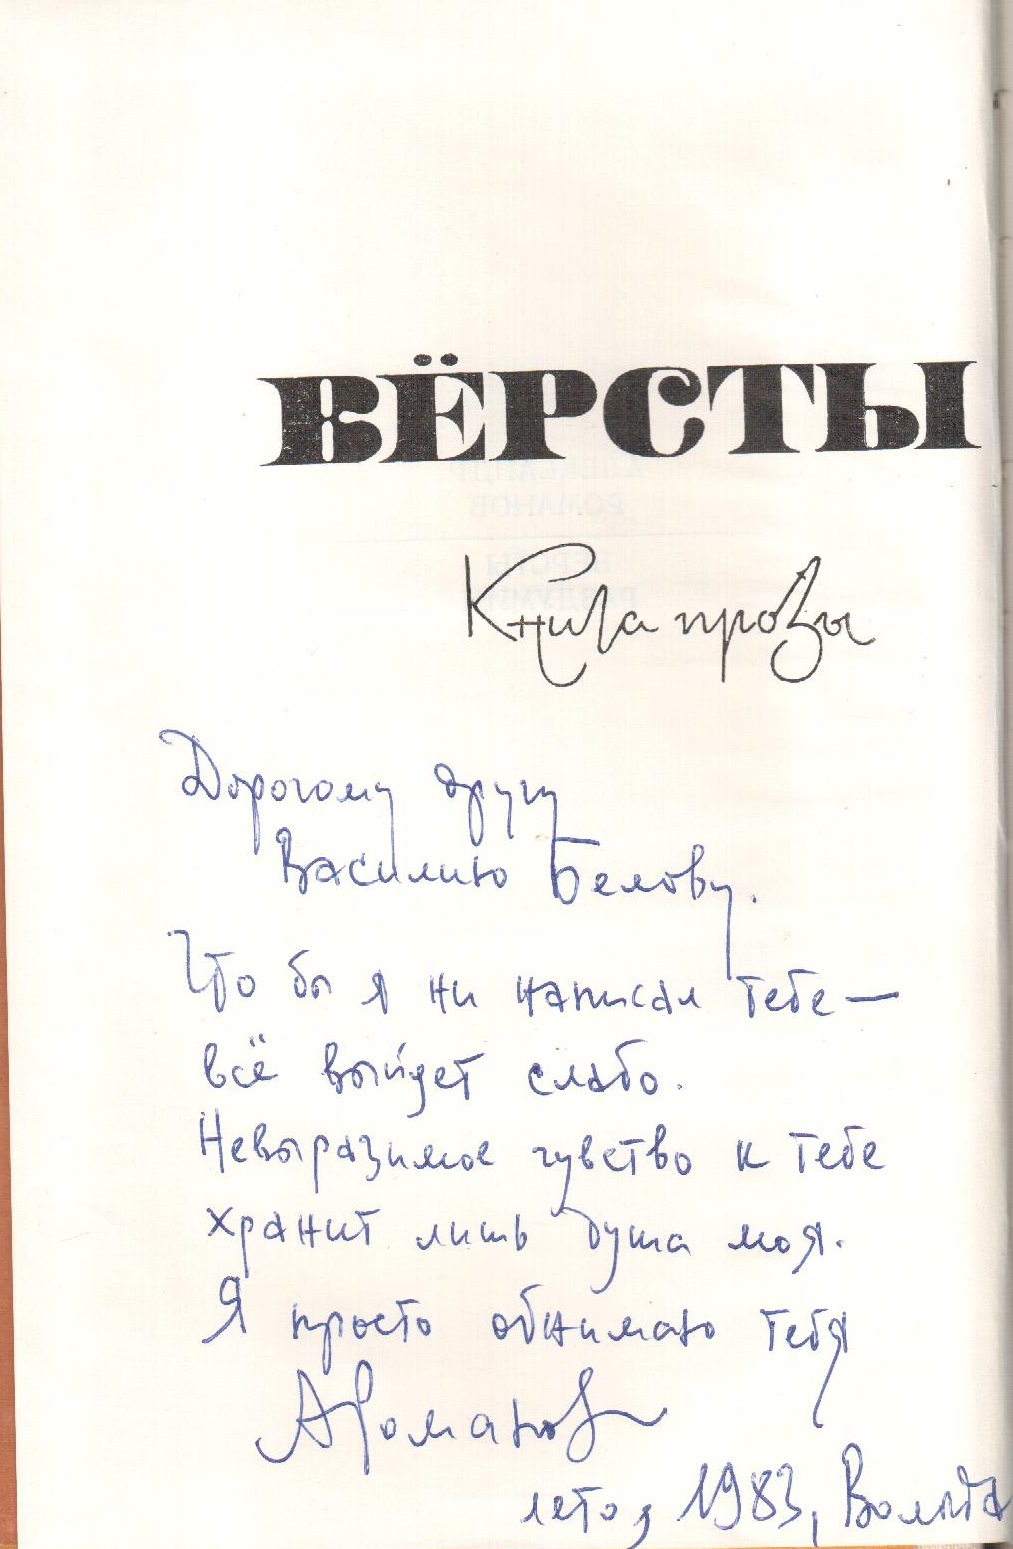 ВЁРСТЫ
Книга прозы
Дорогому другу
Василию Белову.
Что бы я ни написал тебе —
всё выйдет слабо.
Невыразимое чувство к тебе
хранит лишь душа моя.
Я просто обнимаю тебя
А Романов
лето, 1983, Вологда